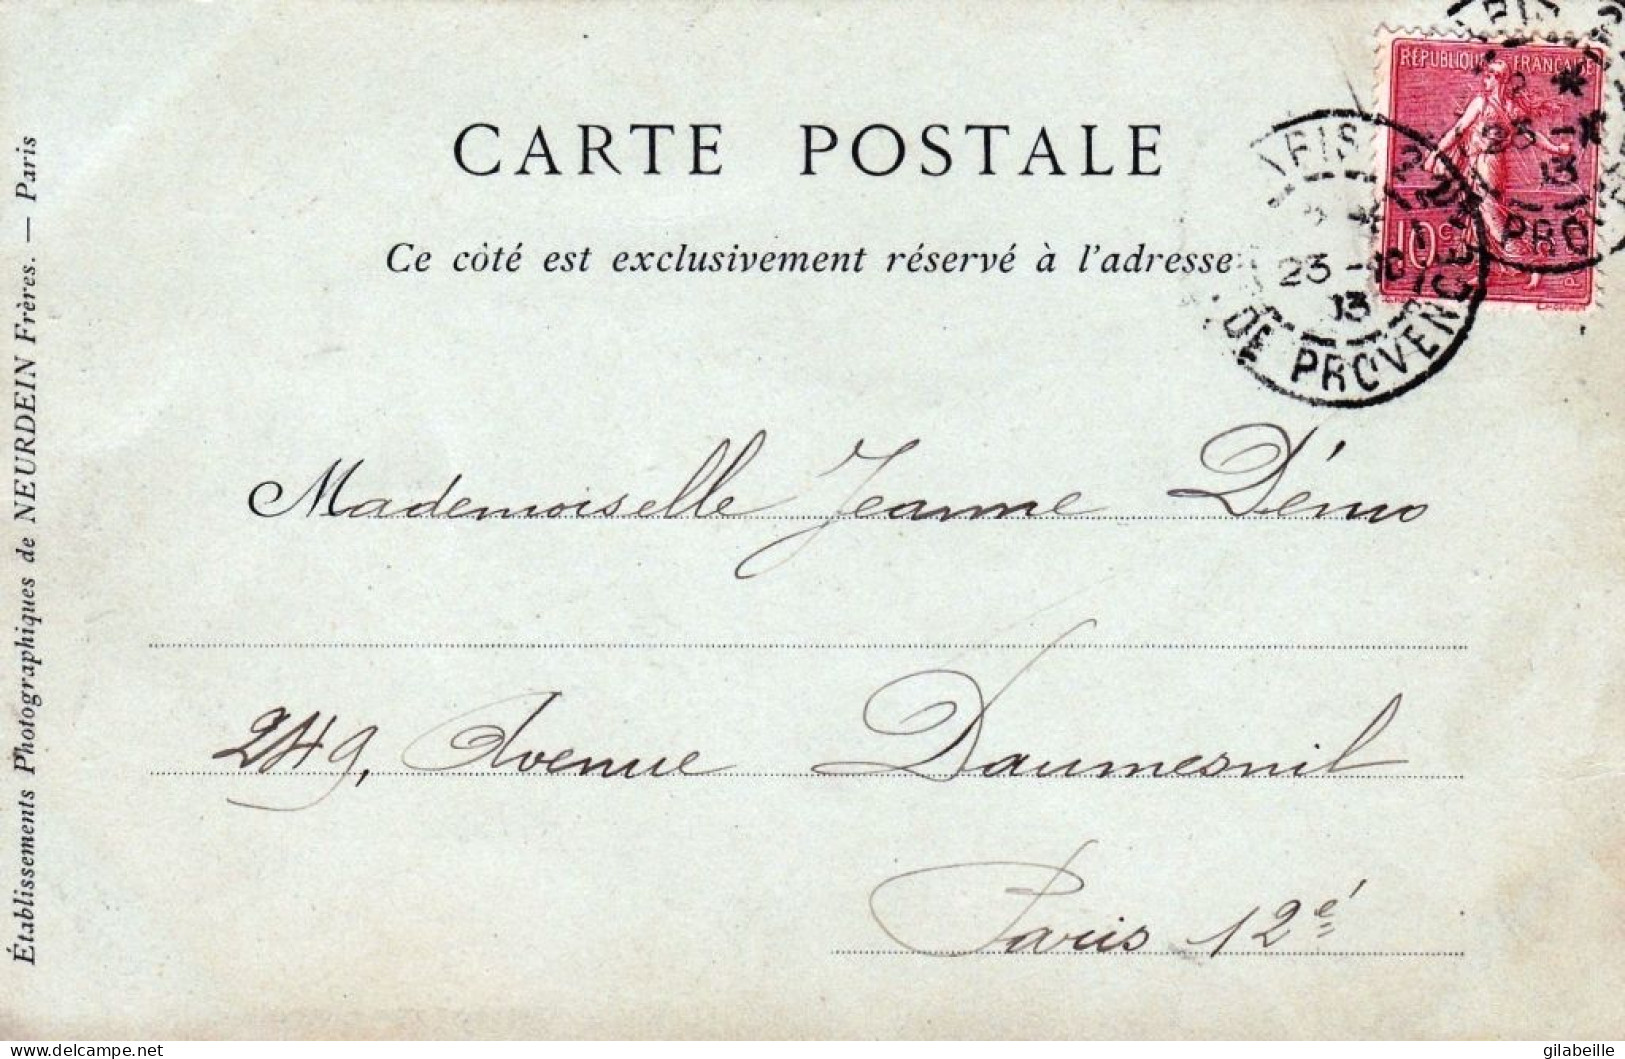 CARTE POSTALE
Ce côté est exclusivement réservé à l'adresse
RÉPUBLIQUE FRANÇAISE
10c
PARIS
23 - 10
13
DE PROVENCE
23 -
13
PROVE
Mademoiselle Jeanne
249, Avenue Daumesnil
Paris 12é
Établissements Photographiques de NEURDEIN Frères. — Paris
www.delcampe.net
gilabeille